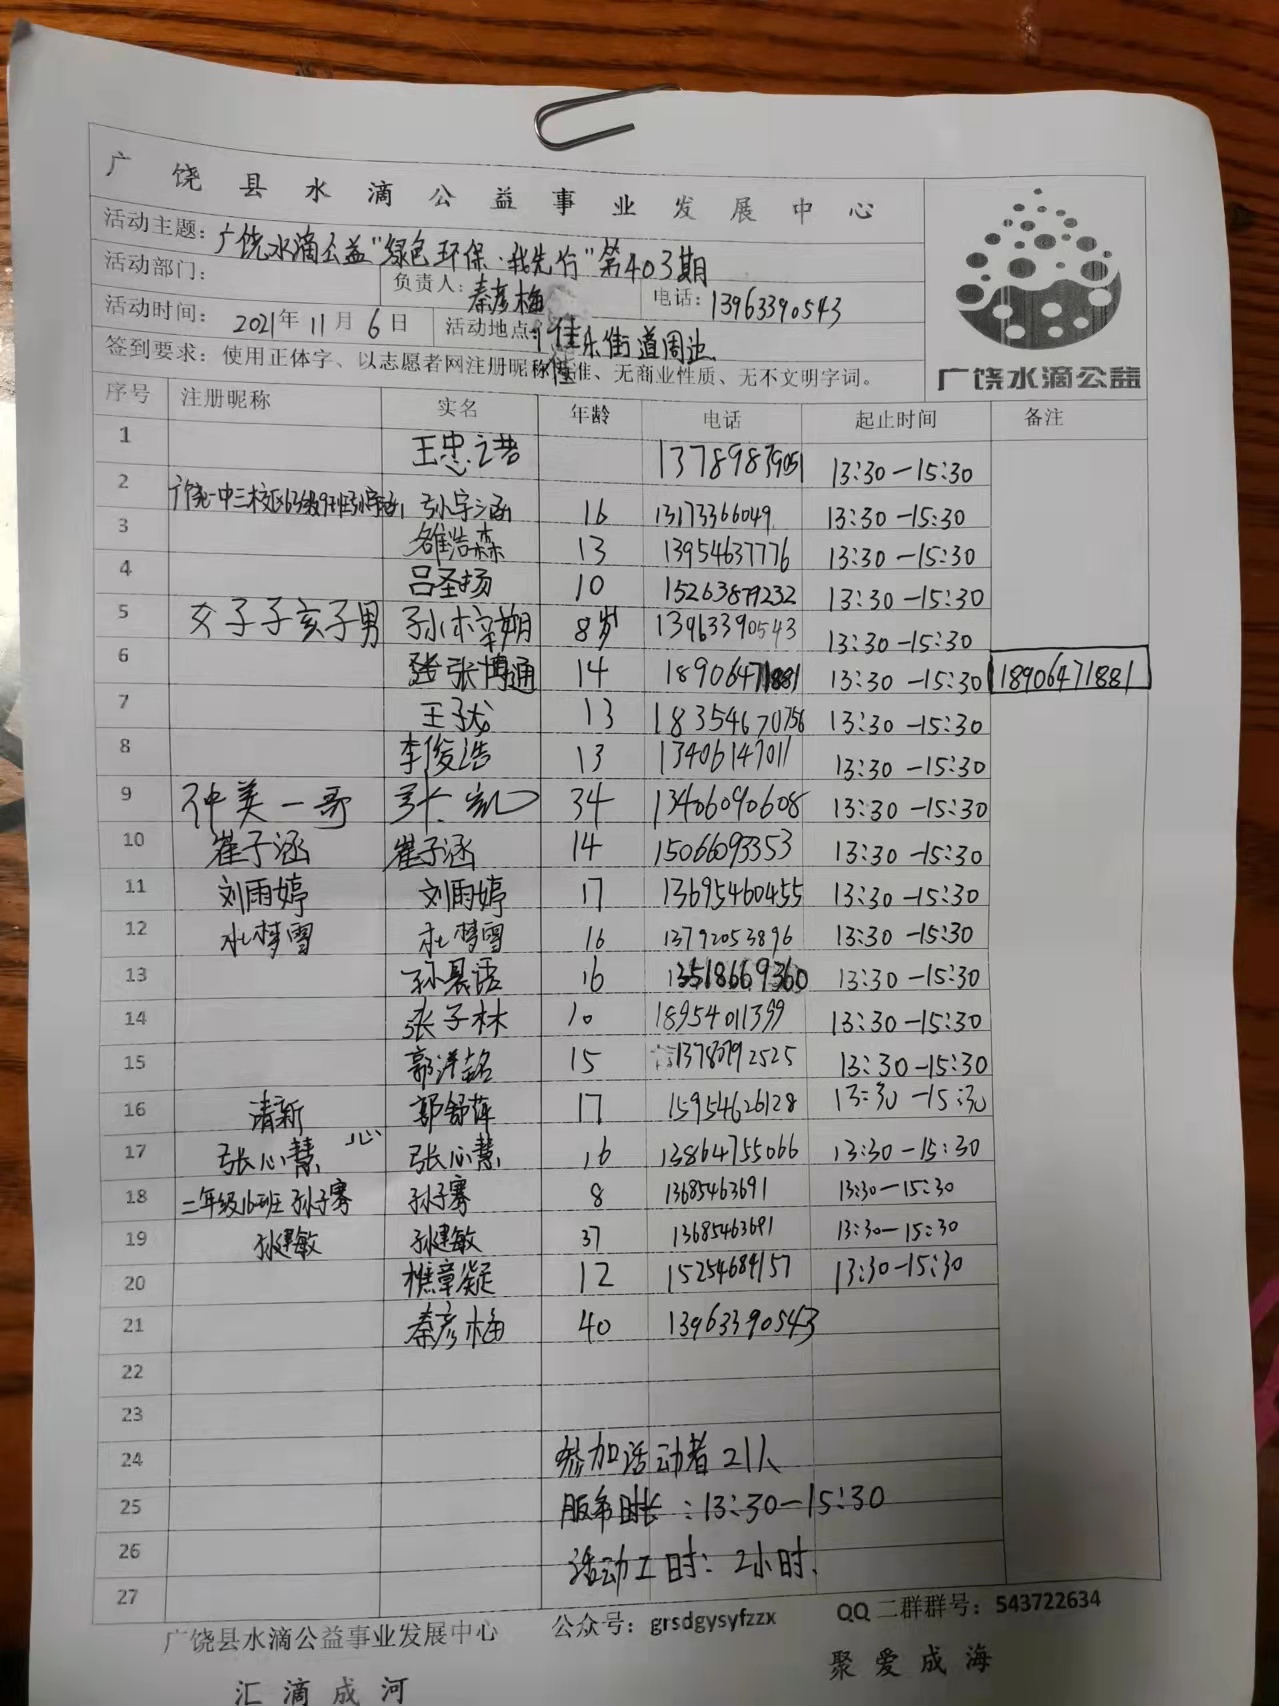 广饶县水滴公益事业发展中心
活动主题：广饶水滴公益"绿色环保·我先行"第403期
活动部门： 负责人：秦彦梅 电话：13963390543
活动时间： 2021年11月6日 活动地点： 乐街道周边
签到要求：使用正体字、以志愿者网注册昵称 准、无商业性质、无不文明字词。
广饶水滴公益
序号 注册昵称 实名 年龄 电话 起止时间 备注
1 王忠 13789879051 13:30-15:30
2 广饶一中三校区 孙宇涵 16 13173366049 13:30-15:30
3 雒浩森 13 13954637776 13:30-15:30
4 吕圣扬 10 15263879232 13:30-15:30
5 女子子亥子男 孙梓翔 8岁 13963390543 13:30-15:30
6 张博通 14 18906471881 13:30-15:30 18906471881
7 王子龙 13 18354670756 13:30-15:30
8 李俊浩 13 13406147011 13:30-15:30
9 仲美一哥 张凯 34 13406090608 13:30-15:30
10 崔子涵 崔子涵 14 15066093353 13:30-15:30
11 刘雨婷 刘雨婷 17 13695460455 13:30-15:30
12 杜梦雪 杜梦雪 16 13792053896 13:30-15:30
13 孙晨语 16 13518669360 13:30-15:30
14 张子林 10 18954011399 13:30-15:30
15 郭洋铭 15 13780792525 13:30-15:30
16 清新 郭舒萍 17 15954626128 13:30-15:30
17 张心慧 心 张心慧 16 13864755066 13:30-15:30
18 二年级16班 孙子骞 孙子骞 8 13685463691 13:30-15:30
19 孙建敏 孙建敏 37 13685463691 13:30-15:30
20 樵章凝 12 15254684157 13:30-15:30
21 秦彦梅 40 13963390543
22
23
24 参加活动者21人
25 服务时长：13:30-15:30
26 活动工时：2小时.
27
广饶县水滴公益事业发展中心 公众号：grsdgysyfzzx QQ二群群号：543722634
汇滴成河 聚爱成海